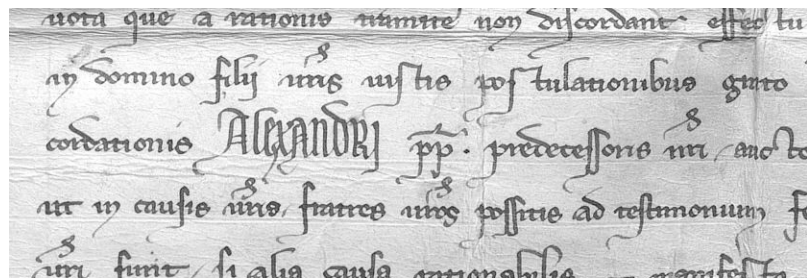 uota que a rationis tramite non discordant effectu
in domino filij uris iustis postulationibus grato
cordationis ALEXANDRI pp. predecessoris nri aucto
ut in causis uris fratres uros possitis ad testimonium
uri fuint si alia causa rationabilis manifesta